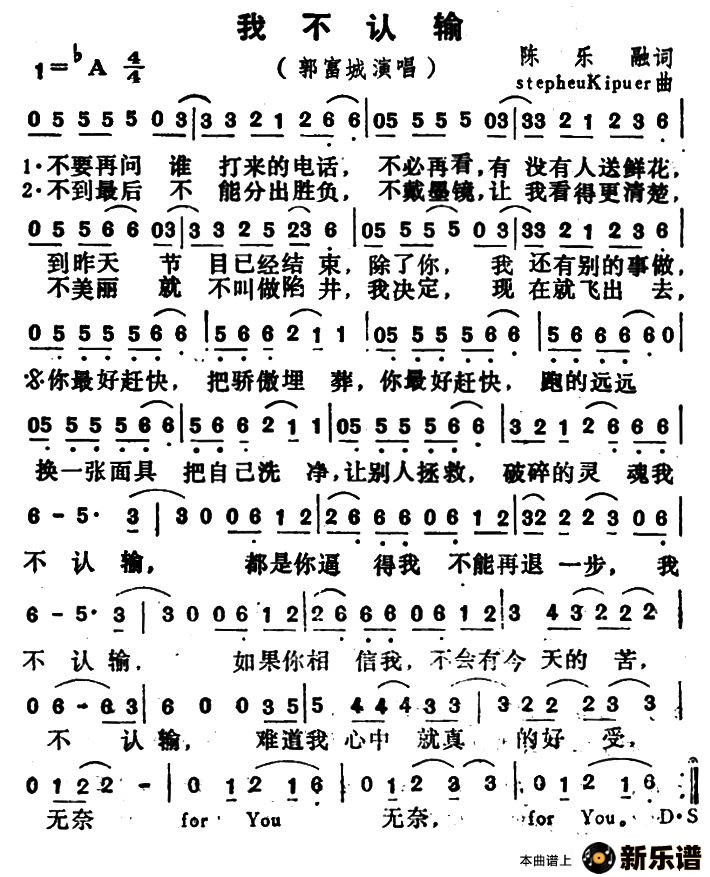 我不认输
1=♭A 4/4
(郭富城演唱)
陈乐融词
stepheuKipuer曲
0 5 5 5 5 0 3|3 3 2 1 2 6 6|05 5 5 5 03|33 2 1 2 3 6|
1·不要再问 谁 打来的电话, 不必再看,有 没有人送鲜花,
2·不到最后 不 能分出胜负, 不戴墨镜,让 我看得更清楚,
0 5 5 6 6 03|3 3 2 5 23 6|05 5 5 5 03|3 3 2 1 2 3 6|
到昨天 节 目已经结 束,除了你, 我 还有别的事做,
不美丽 就 不叫做陷 井,我决定, 现 在就飞出 去,
0 5 5 5 5 6 6|5 6 6 2 1 1|05 5 5 5 6 6|5 6 6 6 6 0|
你最好赶快, 把骄傲埋 葬,你最好赶快, 跑的远远
05 5 5 5 6 6|5 6 6 2 1 1|05 5 5 5 6 6|3 2 1 2 6 6 6|
换一张面具 把自己洗 净,让别人拯救, 破碎的灵 魂我
6 - 5· 3|3 0 0 6 1 2|2 6 6 6 0 6 12|32 2 2 3 0 6|
不 认 输, 都是你逼 得我 不能再退 一步, 我
6 - 5· 3|3 0 0 6 1 2|2 6 6 6 0 6 1 2|3 4 3 2 2 2|
不 认 输. 如果你相 信我,不会有今 天的 苦,
0 6 - 6 3|6 0 0 3 5|5 4 4 4 3 3|3 2 2 2 3 3|
不 认 输, 难道我 心中 就真 的好 受,
0 1 2 2 -|0 1 2 1 6|0 1 2 3 3|0 1 2 1 6:|
无奈 for You 无奈, for You. D·S
本曲谱上 新乐谱